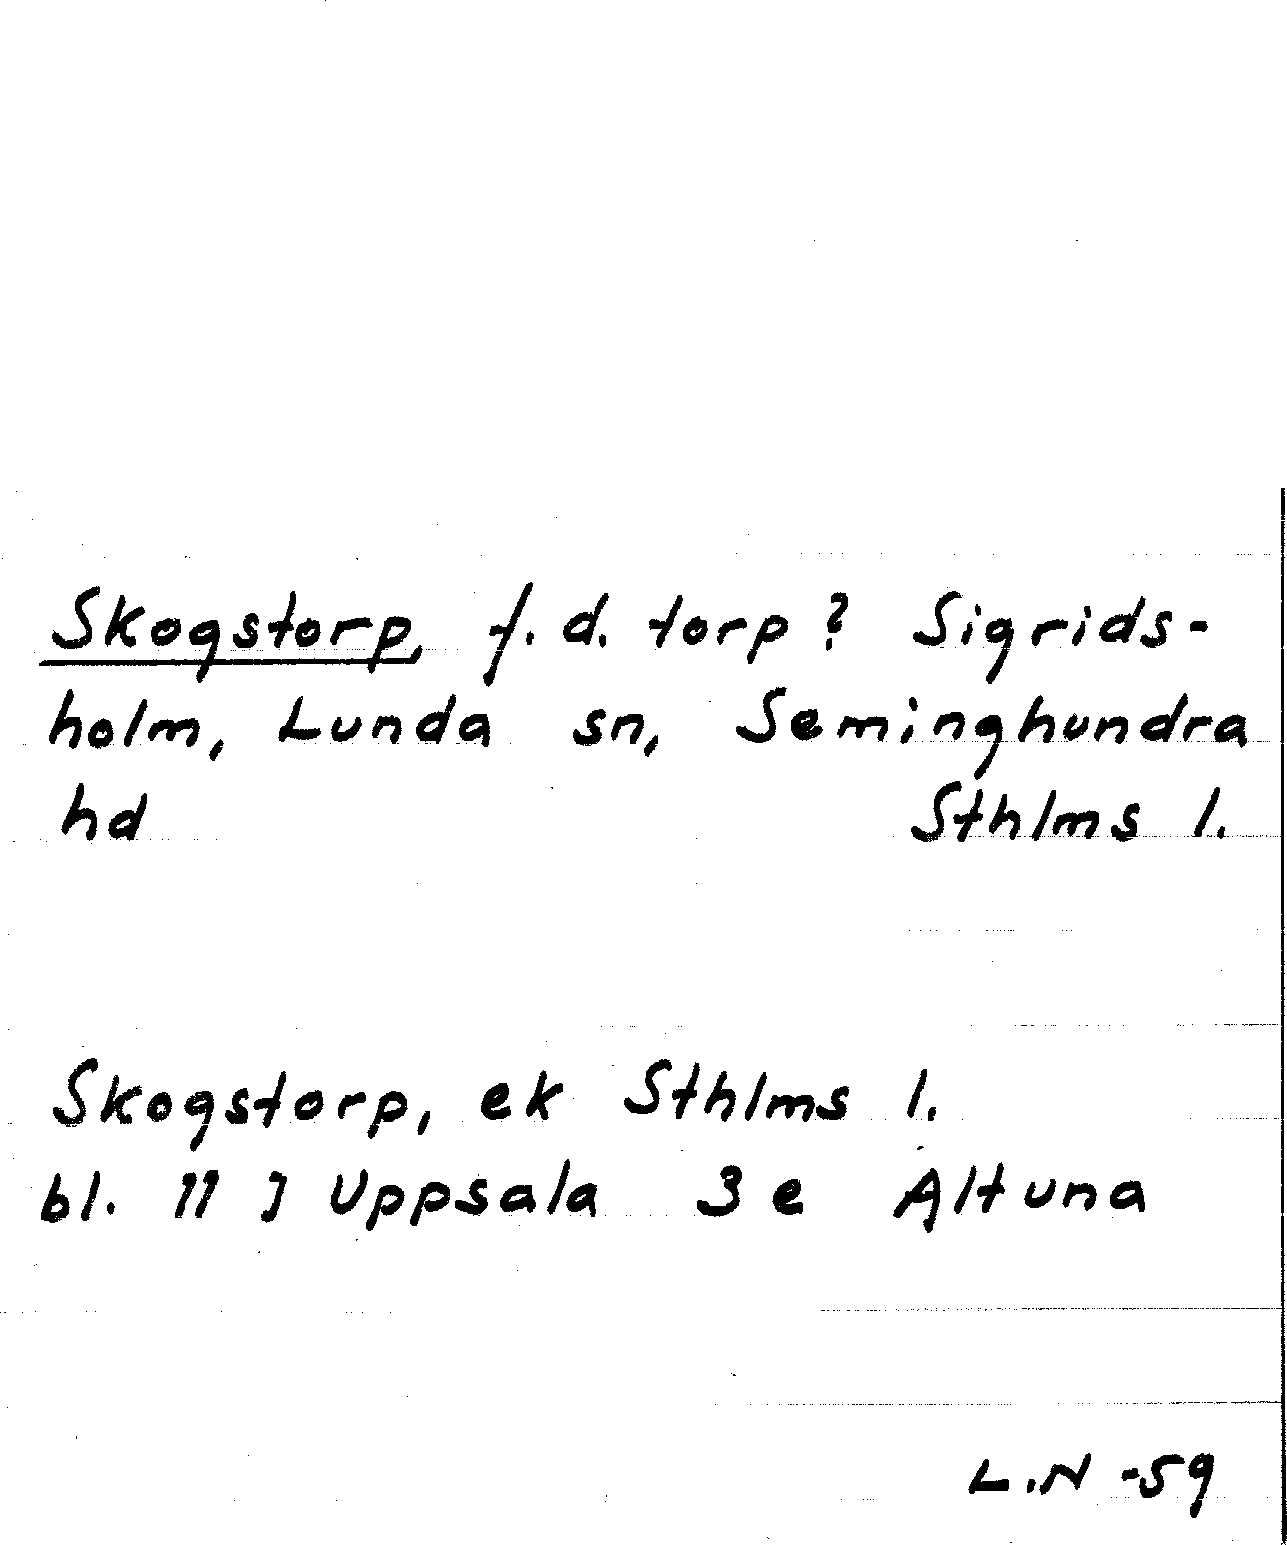 Skogstorp, f.d. torp? Sigrids-
holm, Lunda sn, Seminghundra
hd Sthlms l.
Skogstorp, ek Sthlms l.
bl. 11 J Uppsala 3 e Altuna
L.N -59